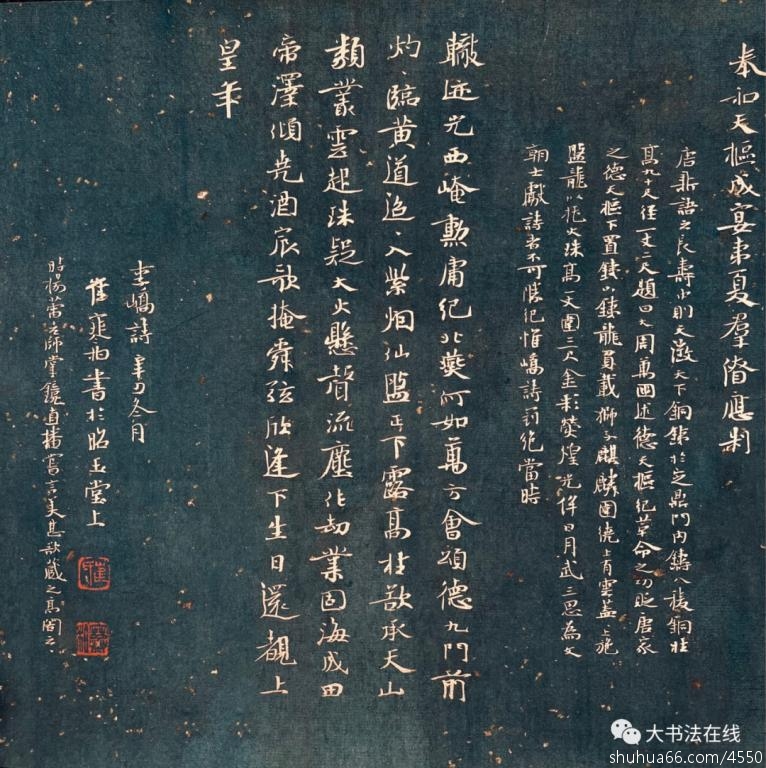 奉和天樞成宴東夏羣僚應制
唐新語云長壽中則天徵天下銅鐵於定鼎門內鑄八稜銅柱
髙九十尺徑一丈二尺題曰大周萬國述德天樞紀革命之功貶唐家
之德天樞下置鐵山鐵龍負載獅子麒麟圍繞上有雲蓋蓋上施
盤龍以托火珠髙一丈圍三尺金彩熒煌光侔日月武三思為文
朝士獻詩者不可勝紀惟嶠詩冠絕當時
轍迹光西崦勳庸紀北燕何如萬方會頌德九門前
灼灼臨黃道迢迢入紫烟仙盤正下露髙柱欲承天山
類叢雲起珠疑大火懸聲流塵化劫業固海成田
帝澤傾堯酒宸歌掩舜弦欣逢下生日還覩上
皇年
李嶠詩 辛丑冬月
崔寒柏書於昭玉堂上
時楊蕾法師掌鏡直播 言美甚欲藏之 閣云
大书法在线
shuhua66.com/4550